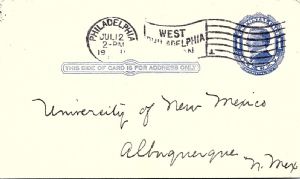 PHILADELPHIA
JUL 12
2-PM
19
WEST
PHILADELPHIA
THIS SIDE OF CARD IS FOR ADDRESS ONLY
University of New Mexico
Albuquerque
N. Mex.